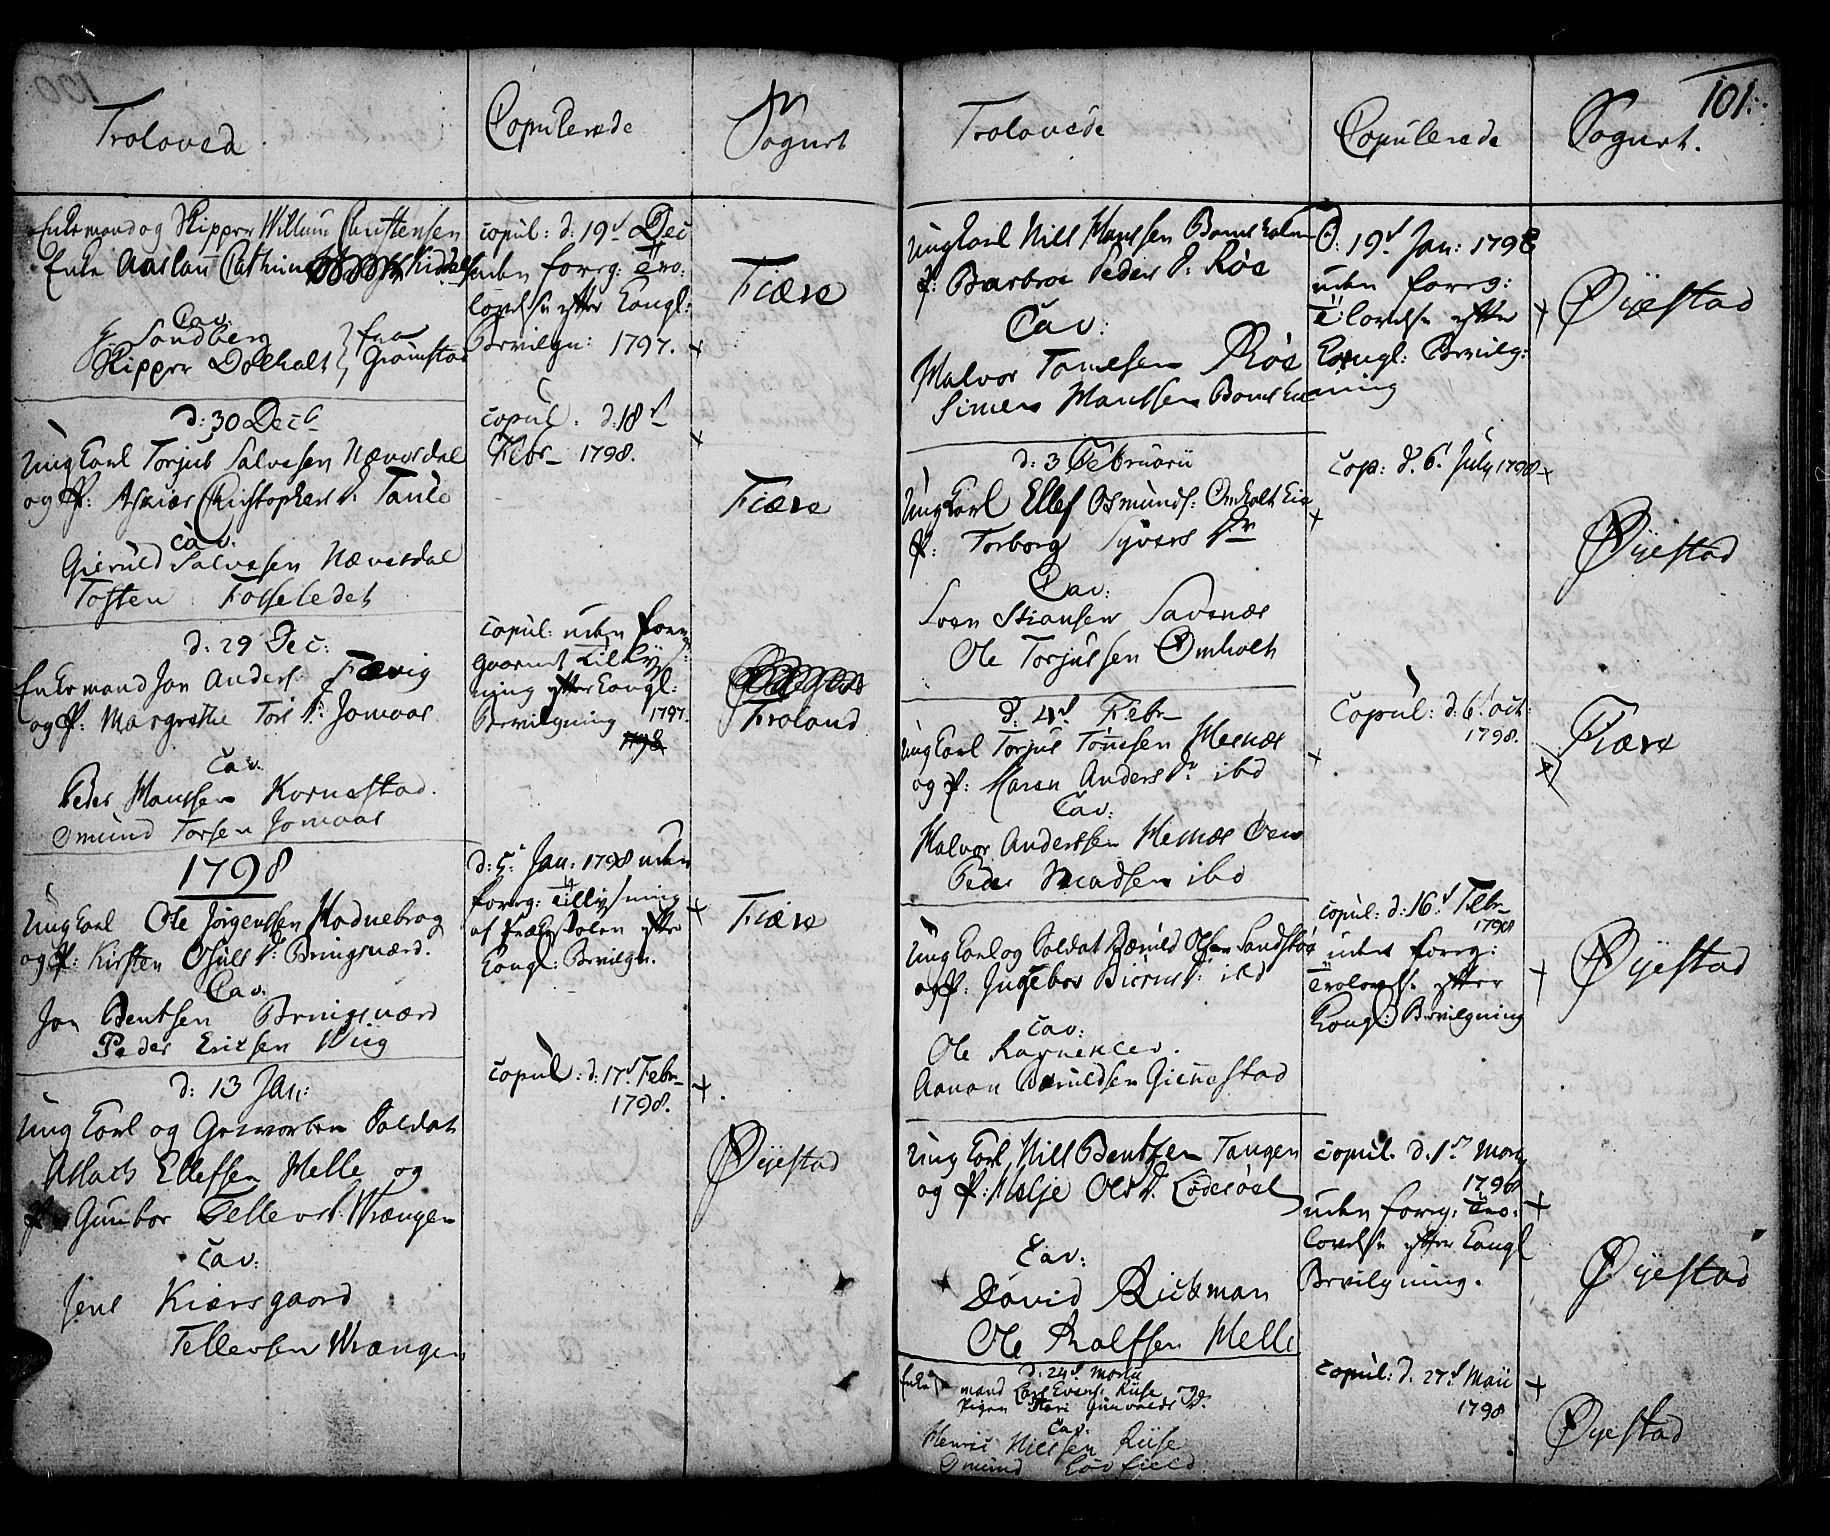 100
Troloved
Copulerede
Sognet
Enkemand og Skipper Willum Christensen
Enke Aaslaug Cathrine
Cav.
Sandberg
Skipper Dolholt } fra Grømstad
copul: d: 19d Dec
uden forrg: Tro:
lovelse efter Kongl:
Bevilgn: 1797.
Fiære
d: 30 Dec
Ung Karl Torjus Salvesen Næversdal
og P: Asnær Christophers D. Taule
Cav:
Gieruld Salvesen Næversdal
Tosten Fosseledet
copul. d: 18d
Febr 1798.
Fiære
d: 29 Dec:
Enkemand Jon Anders: Fævig
og P: Margrethe Tors D: Jomaas
Cav
Peder Hansen Kornestad.
Omund Torsen Jomaas
copul: uden forre
gaaende Tillys:
ning efter Kongl:
Bevilgning 1797.
1798
Froland
1798
Ung Karl Ole Jørgenssen Hodnebrog
og P: Kirsten Osuls D: Bringsværd.
Cav.
Jon Bentsen Bringsværd
Peder Ericsen Wiig
d: 5. Jan: 1798 uden
forrg: Tillysning
af Prækestolen efter
Kongl: Bevilgn.
Fiære
d: 13 Jan:
Ung Karl og Geworben Soldat
Aslach Ellefsen Helle og
P: Gunbor Tellevs D. Wrængen
Cav:
Jens Kiærsgaard
Tellevsen Wrængen
copul: d: 17d Febr
1798.
Øyestad
101.
Trolovede
Copulerede
Sognet.
Ung Karl Nills Hansen Bomsholm
P: Barbroe Peders D. Røe
Cav:
Halvor Tomesen Røe
Simen Hanssen Bomsholm
d: 19d Jan: 1798
uden forrg:
T: lovelse efter
Kongl: Bevilg:
ning
Øyestad
d: 3 Februarii
Ung Karl Ellef Osmunds: Omholt Eie
P: Torborg Syvers Dr
Cav:
Sven Stiansen Savenæs
Ole Torjussen Omholt
Cop: d. 6. July 1798
Øyestad
d. 4d. Febr
Ung Karl Torjus Tomesen Hesnæs
og P: Maren Anders D. ibd
Cav:
Halvor Anderssen Hesnæs Øen
Peder Madsen ibd
Copul: d: 6. Oct:
1798.
Fiære
Ung Karl og Soldat Bæruld Olsen Sandstøe
og P: Ingebor Biørns D. ibd
Cav:
Ole Ravnencer.
Aanon Bæruldsen Gienestad
copul: d: 16d Febr
1798
uden forrg:
Trolovelse efter
Kongl: Bevilgning
Øyestad
Ung Karl Nills Bentsen Tangen
og P: Helje Ols D. Lødesøel
Cav:
David Rickman
Ole Rolfsen Helle
copul. d. 1st Mart
1798
uden forrg: Tro:
lovelse efter Kongl
Bevilgning.
Øyestad
d: 24d Martii
Enkemand Lars Evens: Riise og
Pigen Kari Gunvolds D.
Cav:
Henric Nillsen Riise
Omund Løvfield
copul: d. 27d Maii
1798
Øyestad